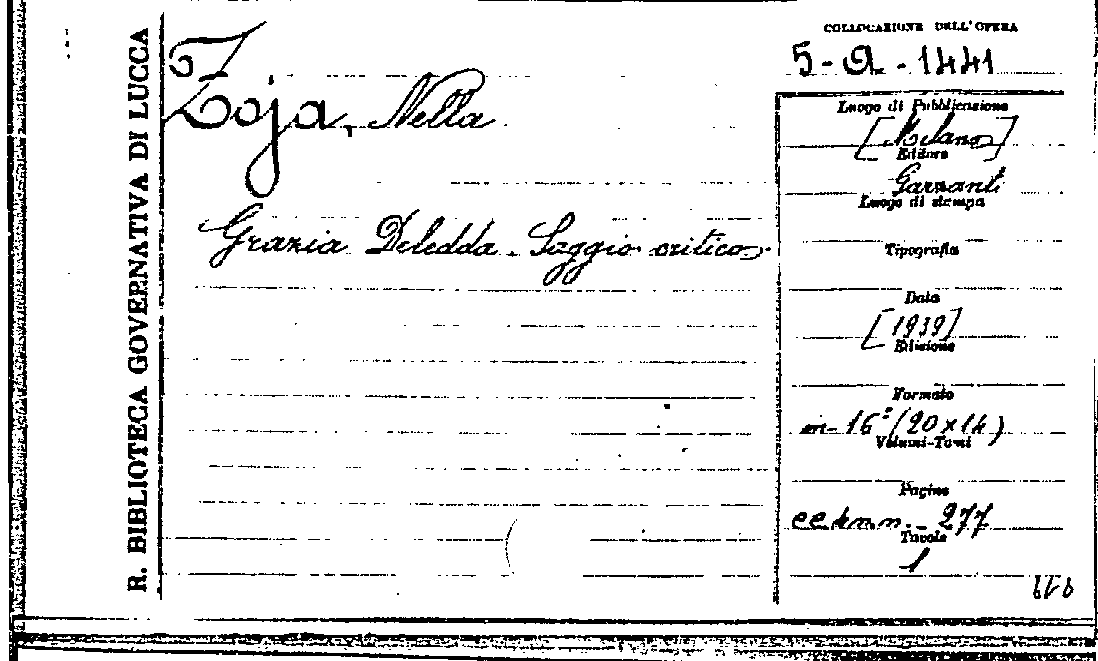 R. BIBLIOTECA GOVERNATIVA DI LUCCA
Zoja, Nella
Grazia Deledda. Saggio critico
COLLOCAZIONE DELL'OPERA
5-a-1441
Luogo di Pubblicazione
[Milano]
Editore
Garzanti
Luogo di stampa
Tipografia
Data
[1939]
Edizione
Formato
in-16º (20x14)
Volumi-Tomi
Pagine
277
Tavole
1